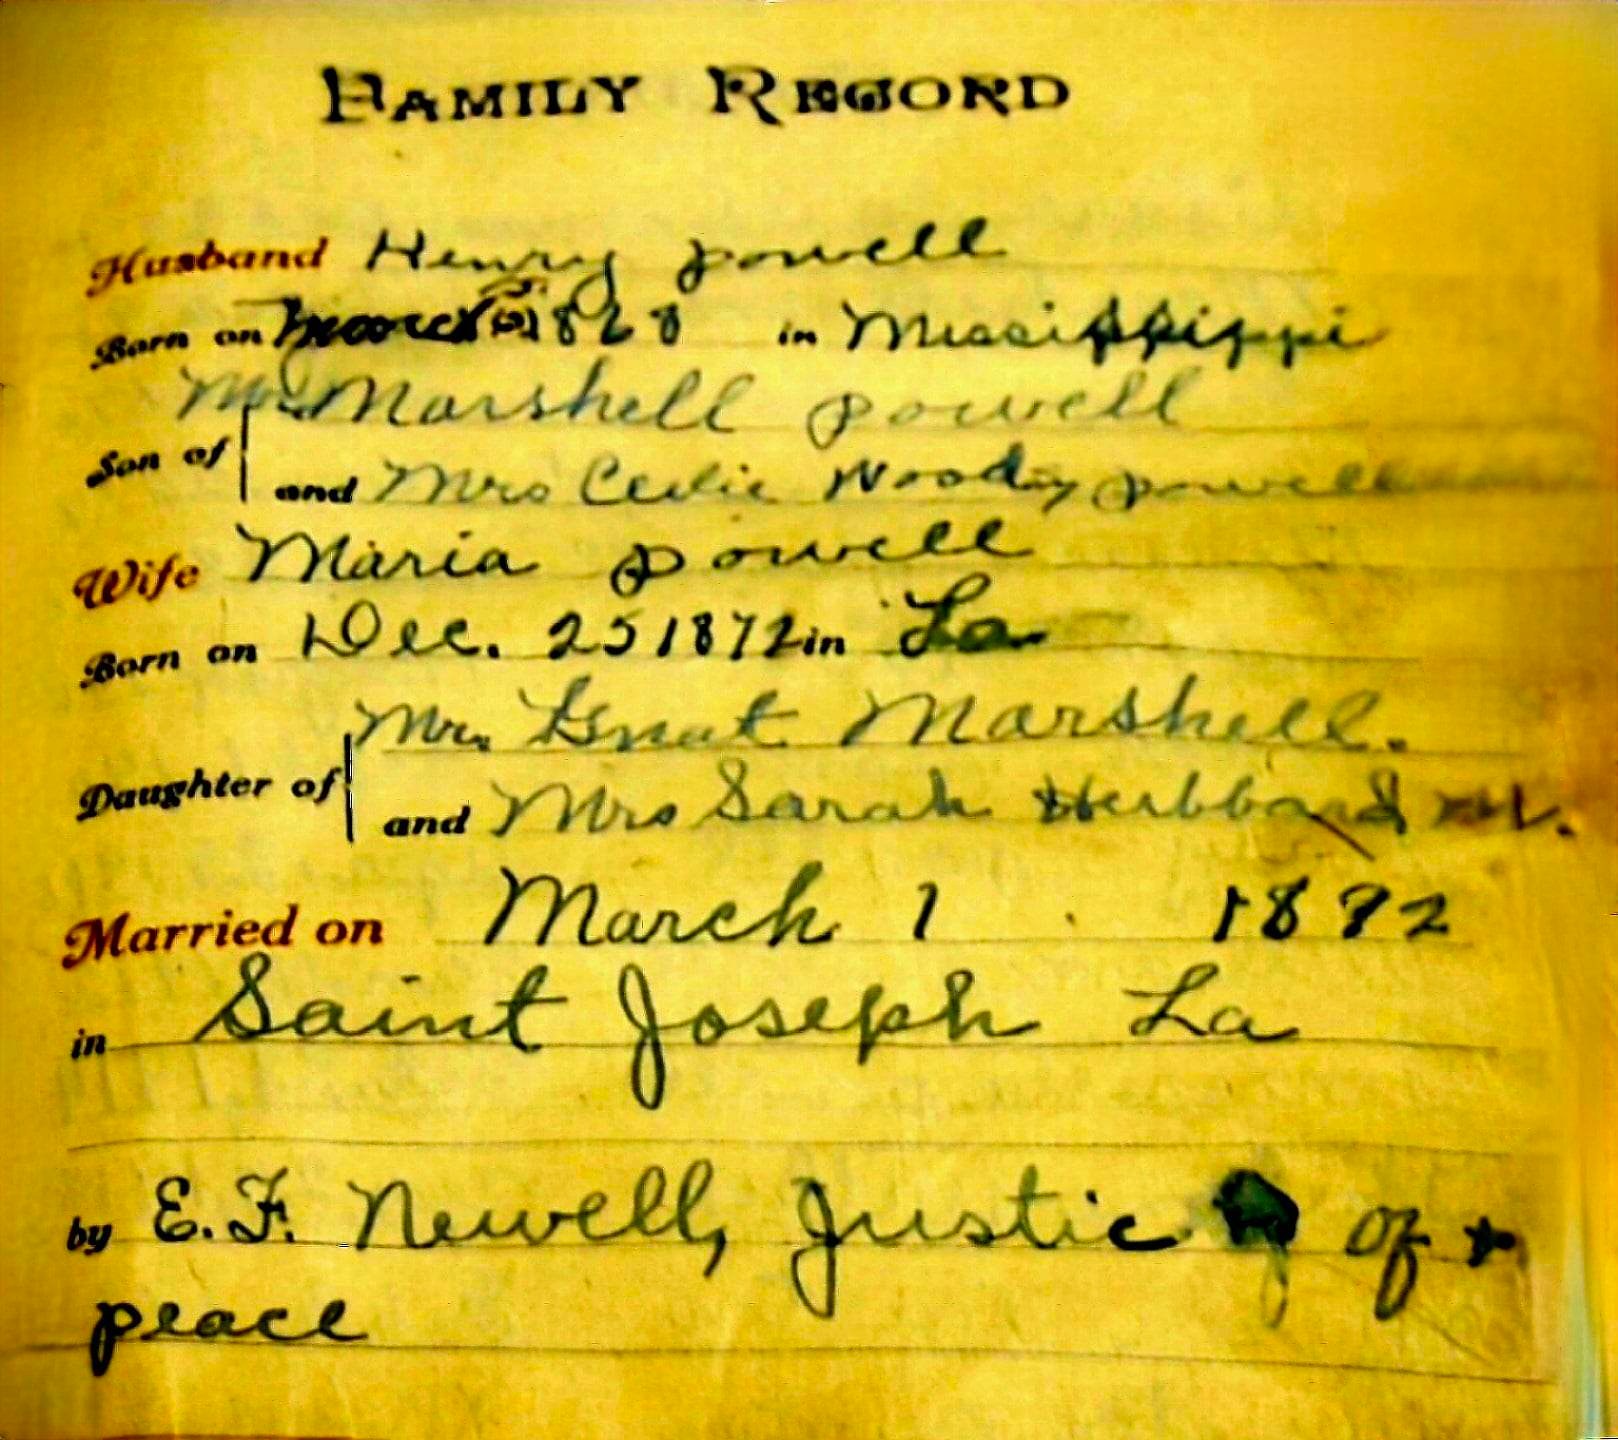 FAMILY RECORD
Husband Henry powell
Born on 1828 in Missisippippi
Mr. Marshell powell
Son of
and Mrs Celie Woody powell
Wife Maria powell
Born on Dec. 25 1872 in La.
Mr. Marshell.
Daughter of
and Mrs Sarah
Married on March 1 1892
in Saint Joseph La
by E. F. Newell, Justic of
peace